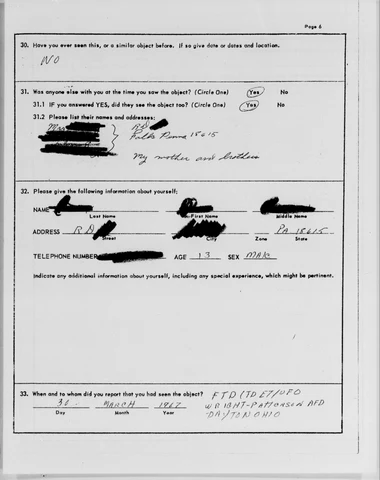 Page 6
30. Have you ever seen this, or a similar object before. If so give date or dates and location.
NO
31. Was anyone else with you at the time you saw the object? (Circle One) Yes No
31.1 IF you answered YES, did they see the object too? (Circle One) Yes No
31.2 Please list their names and addresses:
RD
Falls Penna 18615
My mother and brothers
32. Please give the following information about yourself:
NAME
Last Name First Name Middle Name
ADDRESS RD PA 18615
Street City Zone State
TELEPHONE NUMBER AGE 13 SEX MALE
Indicate any additional information about yourself, including any special experience, which might be pertinent.
33. When and to whom did you report that you had seen the object?
FTD (TDET/UFO
30 MARCH 1967 WRIGHT-PATTERSON AFB
Day Month Year DAYTON OHIO